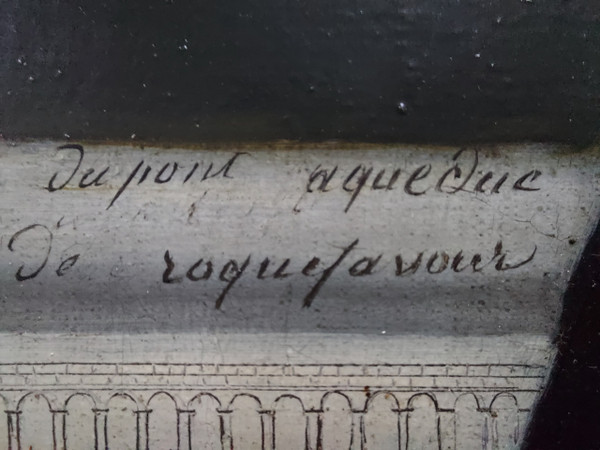 du pont aqueduc
de roquefavour